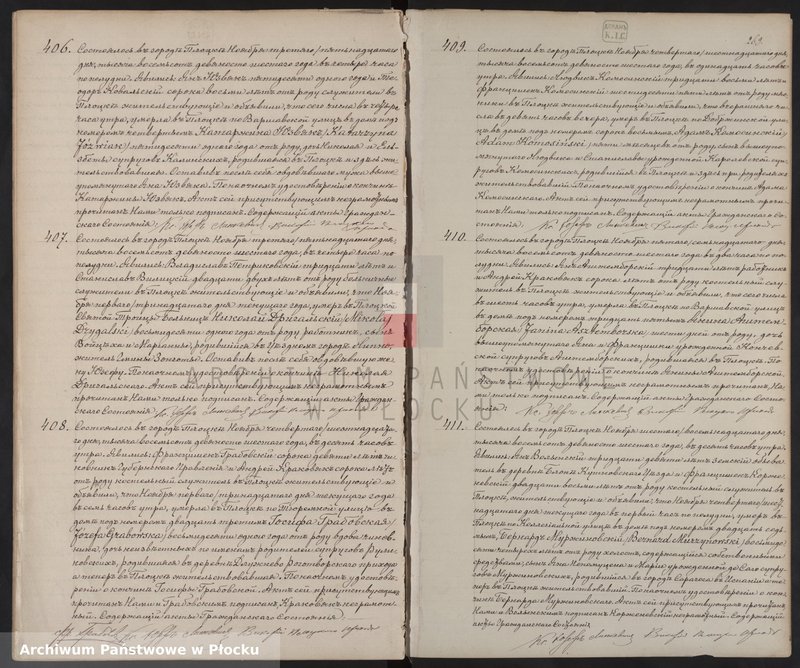 406. Состоялось въ городѣ Плоцкѣ Ноября третьяго/пятнадцатаго
дня, тысяча восемьсотъ девяносто шестаго года, въ четыре часа
по полудни. Явились: Янъ Юзвякъ пятидесяти одного года и
Ковальскій сорока восьми лѣтъ отъ роду служители въ
Плоцкѣ жительствующіе и объявили, что сего числа въ
часа утра, умерла въ Плоцкѣ по Варшавской улицѣ въ домѣ подъ
номеромъ четвертымъ Катаржина Юзвякъ (Katarzyna
Józwiak) пятидесяти одного года отъ роду, дочь Николая и
супруговъ родившаяся въ Плоцкѣ и здѣсь
жительствовавшая. Оставивъ послѣ себя овдовѣвшаго мужа выше
упомянутаго Яна Юзвяка. По наочномъ удостовѣреніи о кончинѣ
Катаржины Юзвякъ. Актъ сей присутствующимъ неграмотнымъ
прочитанъ Нами только подписанъ. Содержащій акты Граждан-
скаго Состоянія
407. Состоялось въ городѣ Плоцкѣ Ноября третьяго/пятнадцатаго дня,
тысяча восемьсотъ девяносто шестаго года, въ четыре часа по
полудни. Явились: Владиславъ Петриковскій тридцати лѣтъ и
Станиславъ двадцати двухъ лѣтъ отъ роду больничные
служители въ Плоцкѣ жительствующіе и объявили, что Ноя-
бря перваго/тринадцатаго дня текущаго года, умеръ въ Плоцкой
Святой Троицы больницѣ Николай Дригальскій (Nikolaj
Drygalski) восьмидесяти одного года отъ роду работникъ, сынъ
Войцѣха и Маріанны, родившійся въ Уѣздномъ городѣ Липно,
житель Гмины Оставивъ послѣ себя овдовѣвшую же-
ну Юзефу. По наочномъ удостовѣреніи о кончинѣ Николая
Дригальскаго. Актъ сей присутствующимъ неграмотнымъ
прочитанъ Нами только подписанъ. Содержащій акты Граждан-
скаго Состоянія
408. Состоялось въ городѣ Плоцкѣ Ноября четвертаго/шестнадцата-
го дня, тысяча восемьсотъ девяносто шестаго года, въ десять часовъ
утра. Явились: Францишекъ Грабовскій сорока девяти лѣтъ чи-
новникъ Губернскаго Правленія и Андрей Краковякъ сорока лѣтъ
отъ роду костельный служитель въ Плоцкѣ жительствующіе и
объявили, что Ноября перваго/тринадцатаго дня текущаго года
въ семь часовъ утра, умерла въ Плоцкѣ по Тюремной улицѣ въ
домѣ подъ номеромъ двадцать третьимъ Госифа Грабовская
(Józefa Grabowska) восьмидесяти одного года отъ роду вдова чинов-
ника, дочь неизвѣстныхъ по именамъ родителей супруговъ
родившаяся въ деревнѣ прихода
а теперь въ Плоцкѣ жительствовавшая. По наочномъ удостовѣ-
реніи о кончинѣ Госифы Грабовской. Актъ сей присутствующимъ
прочитанъ Нами и Грабовскимъ подписанъ, Краковякъ неграмот-
ный. Содержащій акты Гражданскаго Состоянія.
409. Состоялось въ городѣ Плоцкѣ Ноября четвертаго/шестнадцатаго дня,
тысяча восемьсотъ девяносто шестаго года, въ одинадцать часовъ
утра. Явились: Людвикъ Комосинскій тридцати восьми лѣтъ и
Францишекъ Комосинскій шестидесяти пяти лѣтъ отъ роду
въ Плоцкѣ жительствующіе и объявили, что вчерашняго чи-
сла въ девять часовъ вечера, умеръ въ Плоцкѣ по Добржинской ули-
цѣ въ домѣ подъ номеромъ сорокъ восьмымъ Адамъ Комосинскій
(Adam Komosiński) пяти мѣсяцевъ отъ роду, сынъ вышеупо-
мянутаго Людвика и Станиславы урожденной Королевской суп-
руговъ Комосинскихъ, родившійся въ Плоцкѣ и здѣсь при родителяхъ
жительствовавшій. По наочномъ удостовѣреніи о кончинѣ Адама
Комосинскаго. Актъ сей присутствующимъ неграмотнымъ прочи-
танъ Нами только подписанъ. Содержащій акты Гражданскаго Со-
стоянія
410. Состоялось въ городѣ Плоцкѣ Ноября пятаго/семнадцатаго дня,
тысяча восемьсотъ девяносто шестаго года въ два часа по по-
лудни. Явились: Янъ тридцати лѣтъ работникъ
и Андрей Краковякъ сорока лѣтъ отъ роду костельный слу-
житель въ Плоцкѣ жительствующіе и объявили, что сего числа
въ шесть часовъ утра, умерла въ Плоцкѣ по Варшавской улицѣ
въ домѣ подъ номеромъ тридцать пятымъ Янина
(Janina шести дней отъ роду, дочь
вышеупомянутаго Яна и Францишки урожденной
супруговъ родившаяся въ Плоцкѣ. По
наочномъ удостовѣреніи о кончинѣ Янины
Актъ сей присутствующимъ неграмотнымъ прочитанъ, На-
ми только подписанъ. Содержащій акты Гражданскаго Состо-
янія.
411. Состоялось въ городѣ Плоцкѣ Ноября шестаго/восемнадцатаго дня,
тысяча восемьсотъ девяносто шестаго года, въ десять часовъ утра.
Явились: Янъ тридцати девяти лѣтъ
въ деревнѣ Уѣзда и Францишекъ Корже-
невскій двадцати восьми лѣтъ отъ роду костельный служитель въ
Плоцкѣ, жительствующіе и объявили, что Ноября четвертаго/шест-
надцатаго дня текущаго года въ первый часъ по полудни, умеръ въ
Плоцкѣ по Коллегіальной улицѣ въ домѣ подъ номеромъ двадцать седь-
мымъ Бернардъ Муржиновскій (Bernard Murzynowski) восьмиде-
сяти четырехъ лѣтъ отъ роду холостъ, содержащійся собственными
средствами, сынъ Яна Непомуцена и Маріи урожденной супру-
говъ Муржиновскихъ, родившійся въ городѣ Сарагоса въ Испаніи а те-
перь въ Плоцкѣ жительствовавшій. По наочномъ удостовѣреніи о кон-
чинѣ Бернарда Муржиновскаго. Актъ сей присутствующимъ прочитанъ
Нами и подписанъ, Корженевскій неграмотный. Содержащій
акты Гражданскаго Состоянія
ARCHIWUM PAŃSTWOWE
W PŁOCKU
Archiwum Państwowe w Płocku